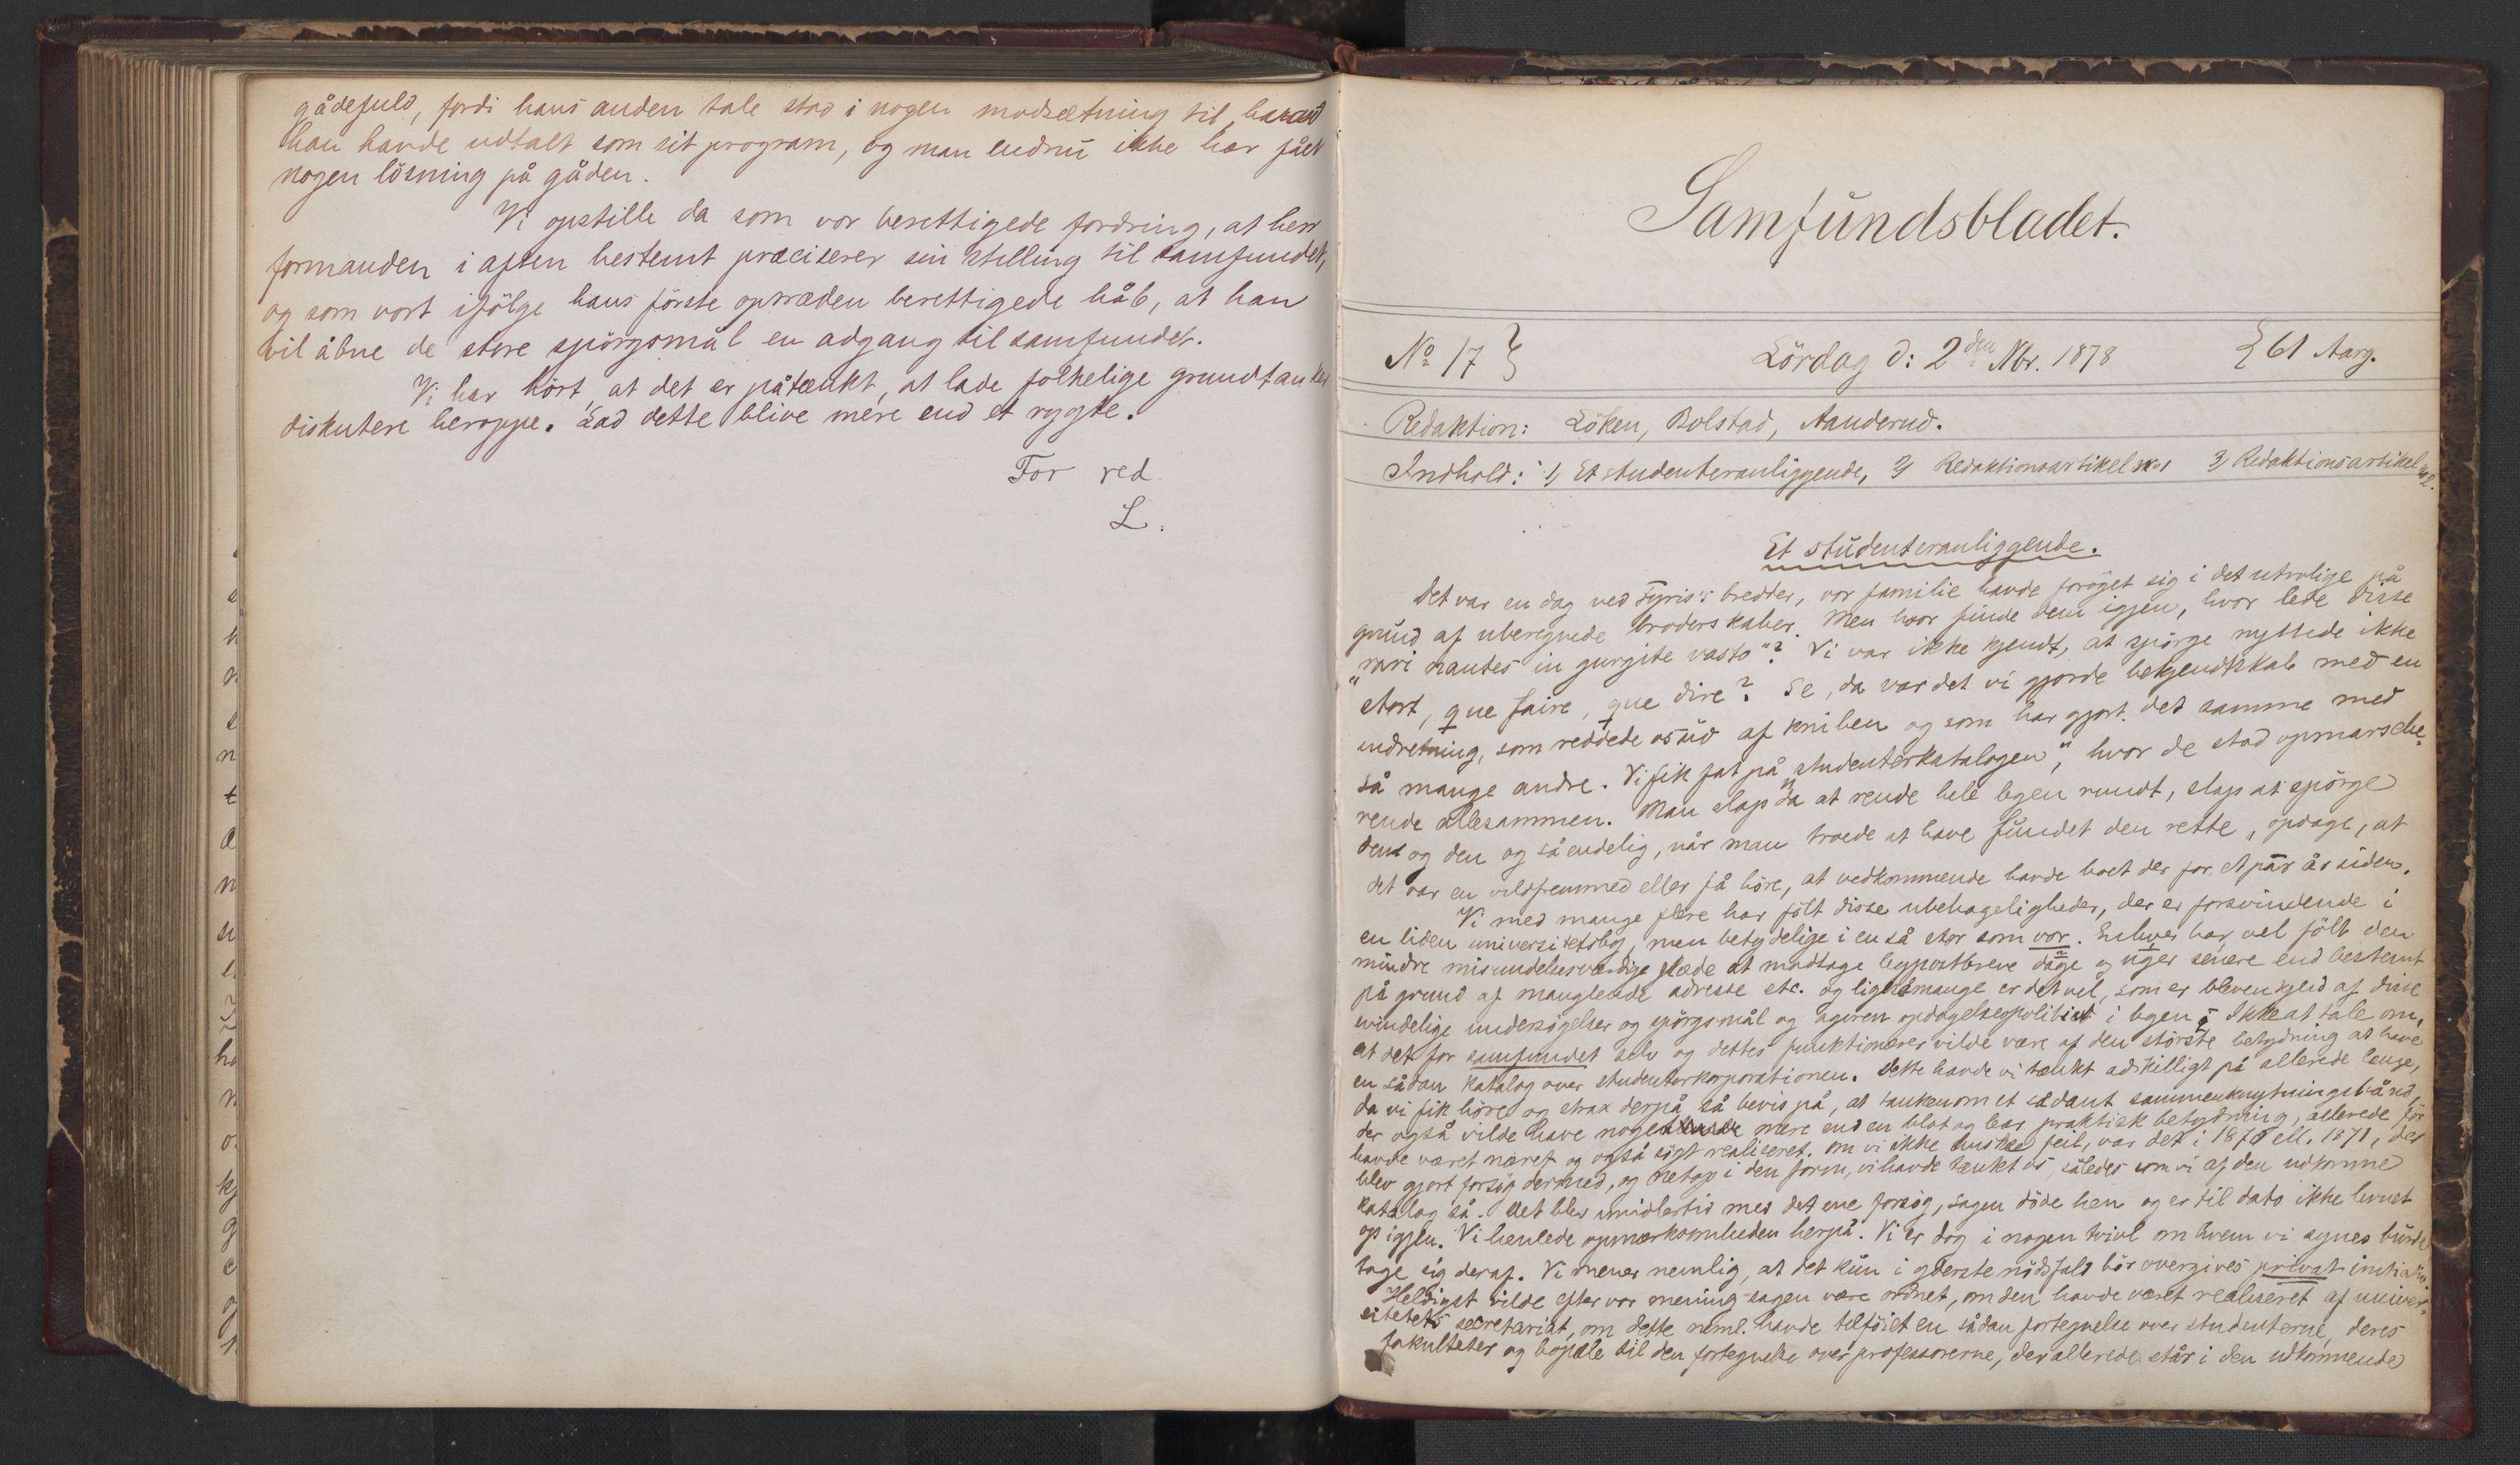 gådefuld, fordi hans anden tale stod i nogen modsætning til, hvad
han havde udtalt som sit program, og man endnu ikke har fået
nogen lösning på gåden.
Vi opstille da som vor berettigede fordring, at herr
formanden i aften bestemt præciserer sin stilling til samfundet,
og som vort ifölge hans förste optræden berettigede håb, at han
vil åbne de store spörgsmål en adgang til samfundet.
Vi har hört, at det er påtænkt, at lade folkelige grundtanker
diskutere heroppe. Lad dette blive mere end et rygte.
For red
L.
Samfundsbladet.
No 17 Lördag d: 2den Nbr. 1878 61 Aarg.
Redaktion: Löken, Bolstad, Aanderud.
Indhold: 1, Et studenteranliggende, 2, Redaktionsartikel no 1 3, Redaktionsartikel no 2.
Et studenteranliggende.
Det var en dag ved Fyris's bredder, vor familie havde foröget sig i det utrolige på
grund af uberegnede broderskaber. Men hvor finde dem igjen, hvor lede disse
"rari nantes in gurgite vasto"? Vi var ikke kjendt, at spörge nyttede ikke
stort, que faire, que dire? Se, da var det vi gjorde bekjendtskab med en
indretning, som reddede os ud af kniben og som har gjort det samme med
så mange andre. Vi fik fat på "studenterkatalogen", hvor de stod opmarsche-
rende allesammen. Man slap da at rende hele byen rundt, slap at spörge
den og den og så endelig, når man troede at have fundet den rette, opdage, at
det var en vildfremmed eller få höre, at vedkommende havde boet der for et par år siden.
Vi med mange flere har fölt disse ubehageligheder, der er forsvindende i
en liden universitetsby, men betydelige i en så stor som vor. Enhver har vel fölt den
mindre misundelsesværdige glæde at modtage bypostbreve dage og uger senere end bestemt
på grund af manglende adresse etc. og ligeså mange er det vel, som er bleven kjed af disse
evindelige undersögelser og spörgsmål og ageren opdagelsespolitist i byen. Ikke at tale om,
at det for samfundet selv og dettes funktionærer vilde være af den störste betydning at have
en sådan katalog over studenterkorporationen. Dette havde vi tænkt adskilligt på allerede længe,
da vi fik höre og strax derpå så bevis på, at tanken om et sådant sammenknytningsbånd,
der også vilde have noget mere end en blot og bar praktisk betydning, allerede för
havde været næret og også sögt realiseret. Om vi ikke husker feil, var det i 1870 ell. 1871, der
blev gjort forsög dermed, og netop i den form, vi havde tænkt os, således som vi af den udkomne
katalog så. Det blev imidlertid med det ene forsög, sagen döde hen og er til dato ikke levnet
op igjen. Vi henlede opmærksomheden herpå. Vi er dog i nogen tvivl om hvem vi synes burde
tage sig deraf. Vi mener nemlig, at det kun i yderste nödsfald bör overgives privat initiativ.
Heldigst vilde efter vor mening sagen være ordnet, om den havde været realiseret af univer-
sitetets secretariat, om dette neml. havde tilföiet en sådan fortegnelse over studenterne, deres
fakulteter og bopæle til den fortegnelse over professorerne, der allerede står i den udkommende